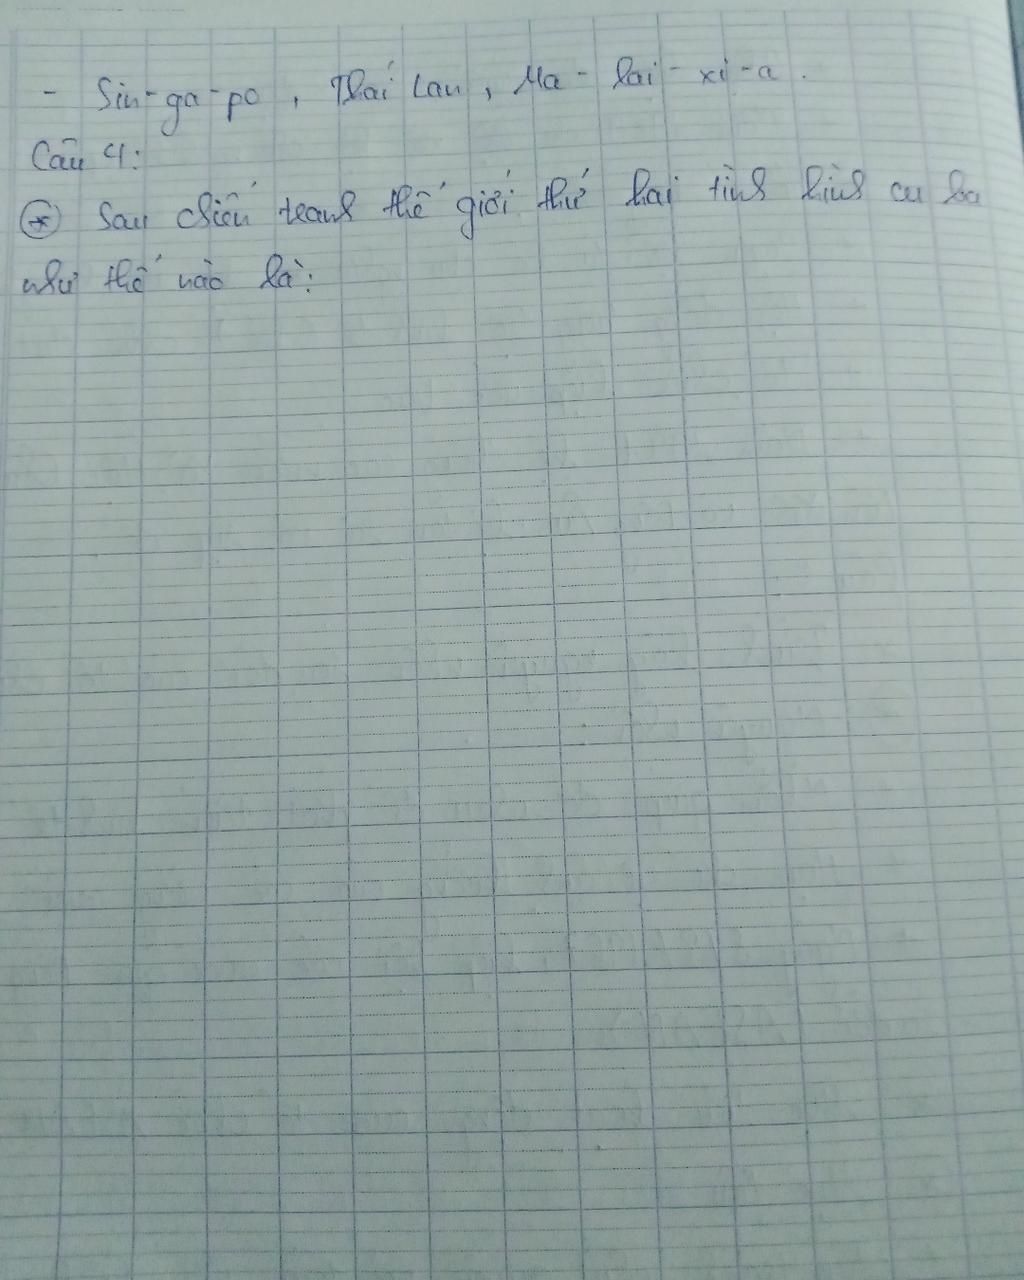 - Sin-ga-po, Thái Lan, Ma-lai-xi-a.
Câu 4:
* Sau chiến tranh thế giới thứ hai tình hình cu ba
như thế nào là: